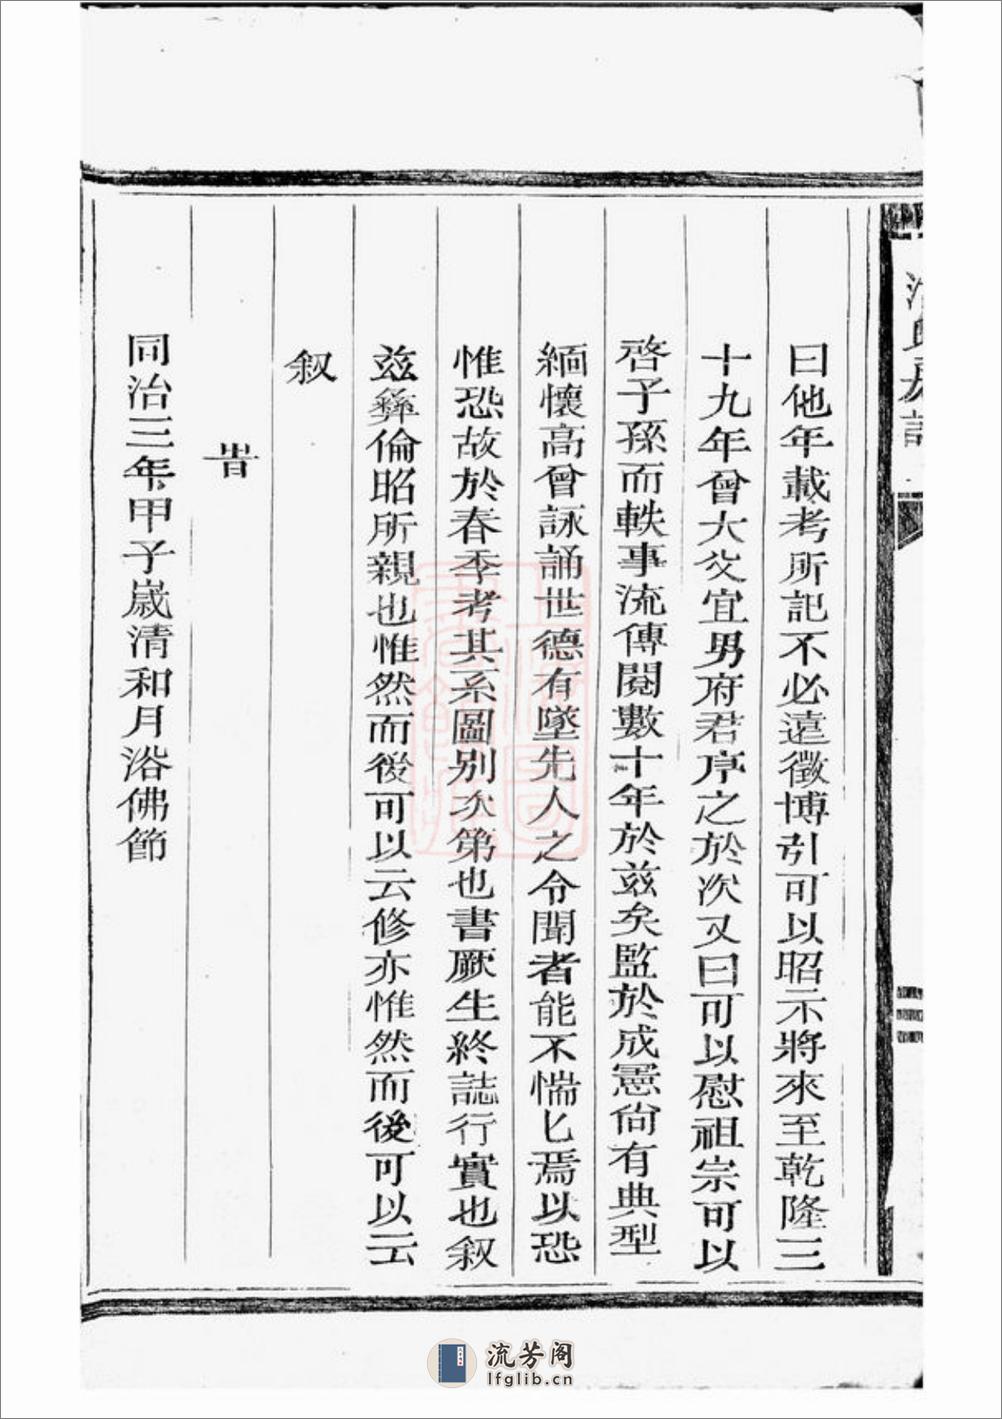 曰他年載考所記不必遠徵博引可以昭示將來至乾隆三
十九年曾大父宜男府君序之於次又曰可以慰祖宗可以
啓子孫而軼事流傳閱數十年於兹矣監於成憲尙有典型
緬懷高曾詠誦世德有墜先人之令聞者能不惴匕焉以恐
惟恐故於春季考其系圖別次第也書厥生終誌行實也叙
兹彝倫昭所親也惟然而後可以云修亦惟然而後可以云
叙
旹
同治三年甲子嵗清和月浴佛節
流芳阁
lfglib.cn